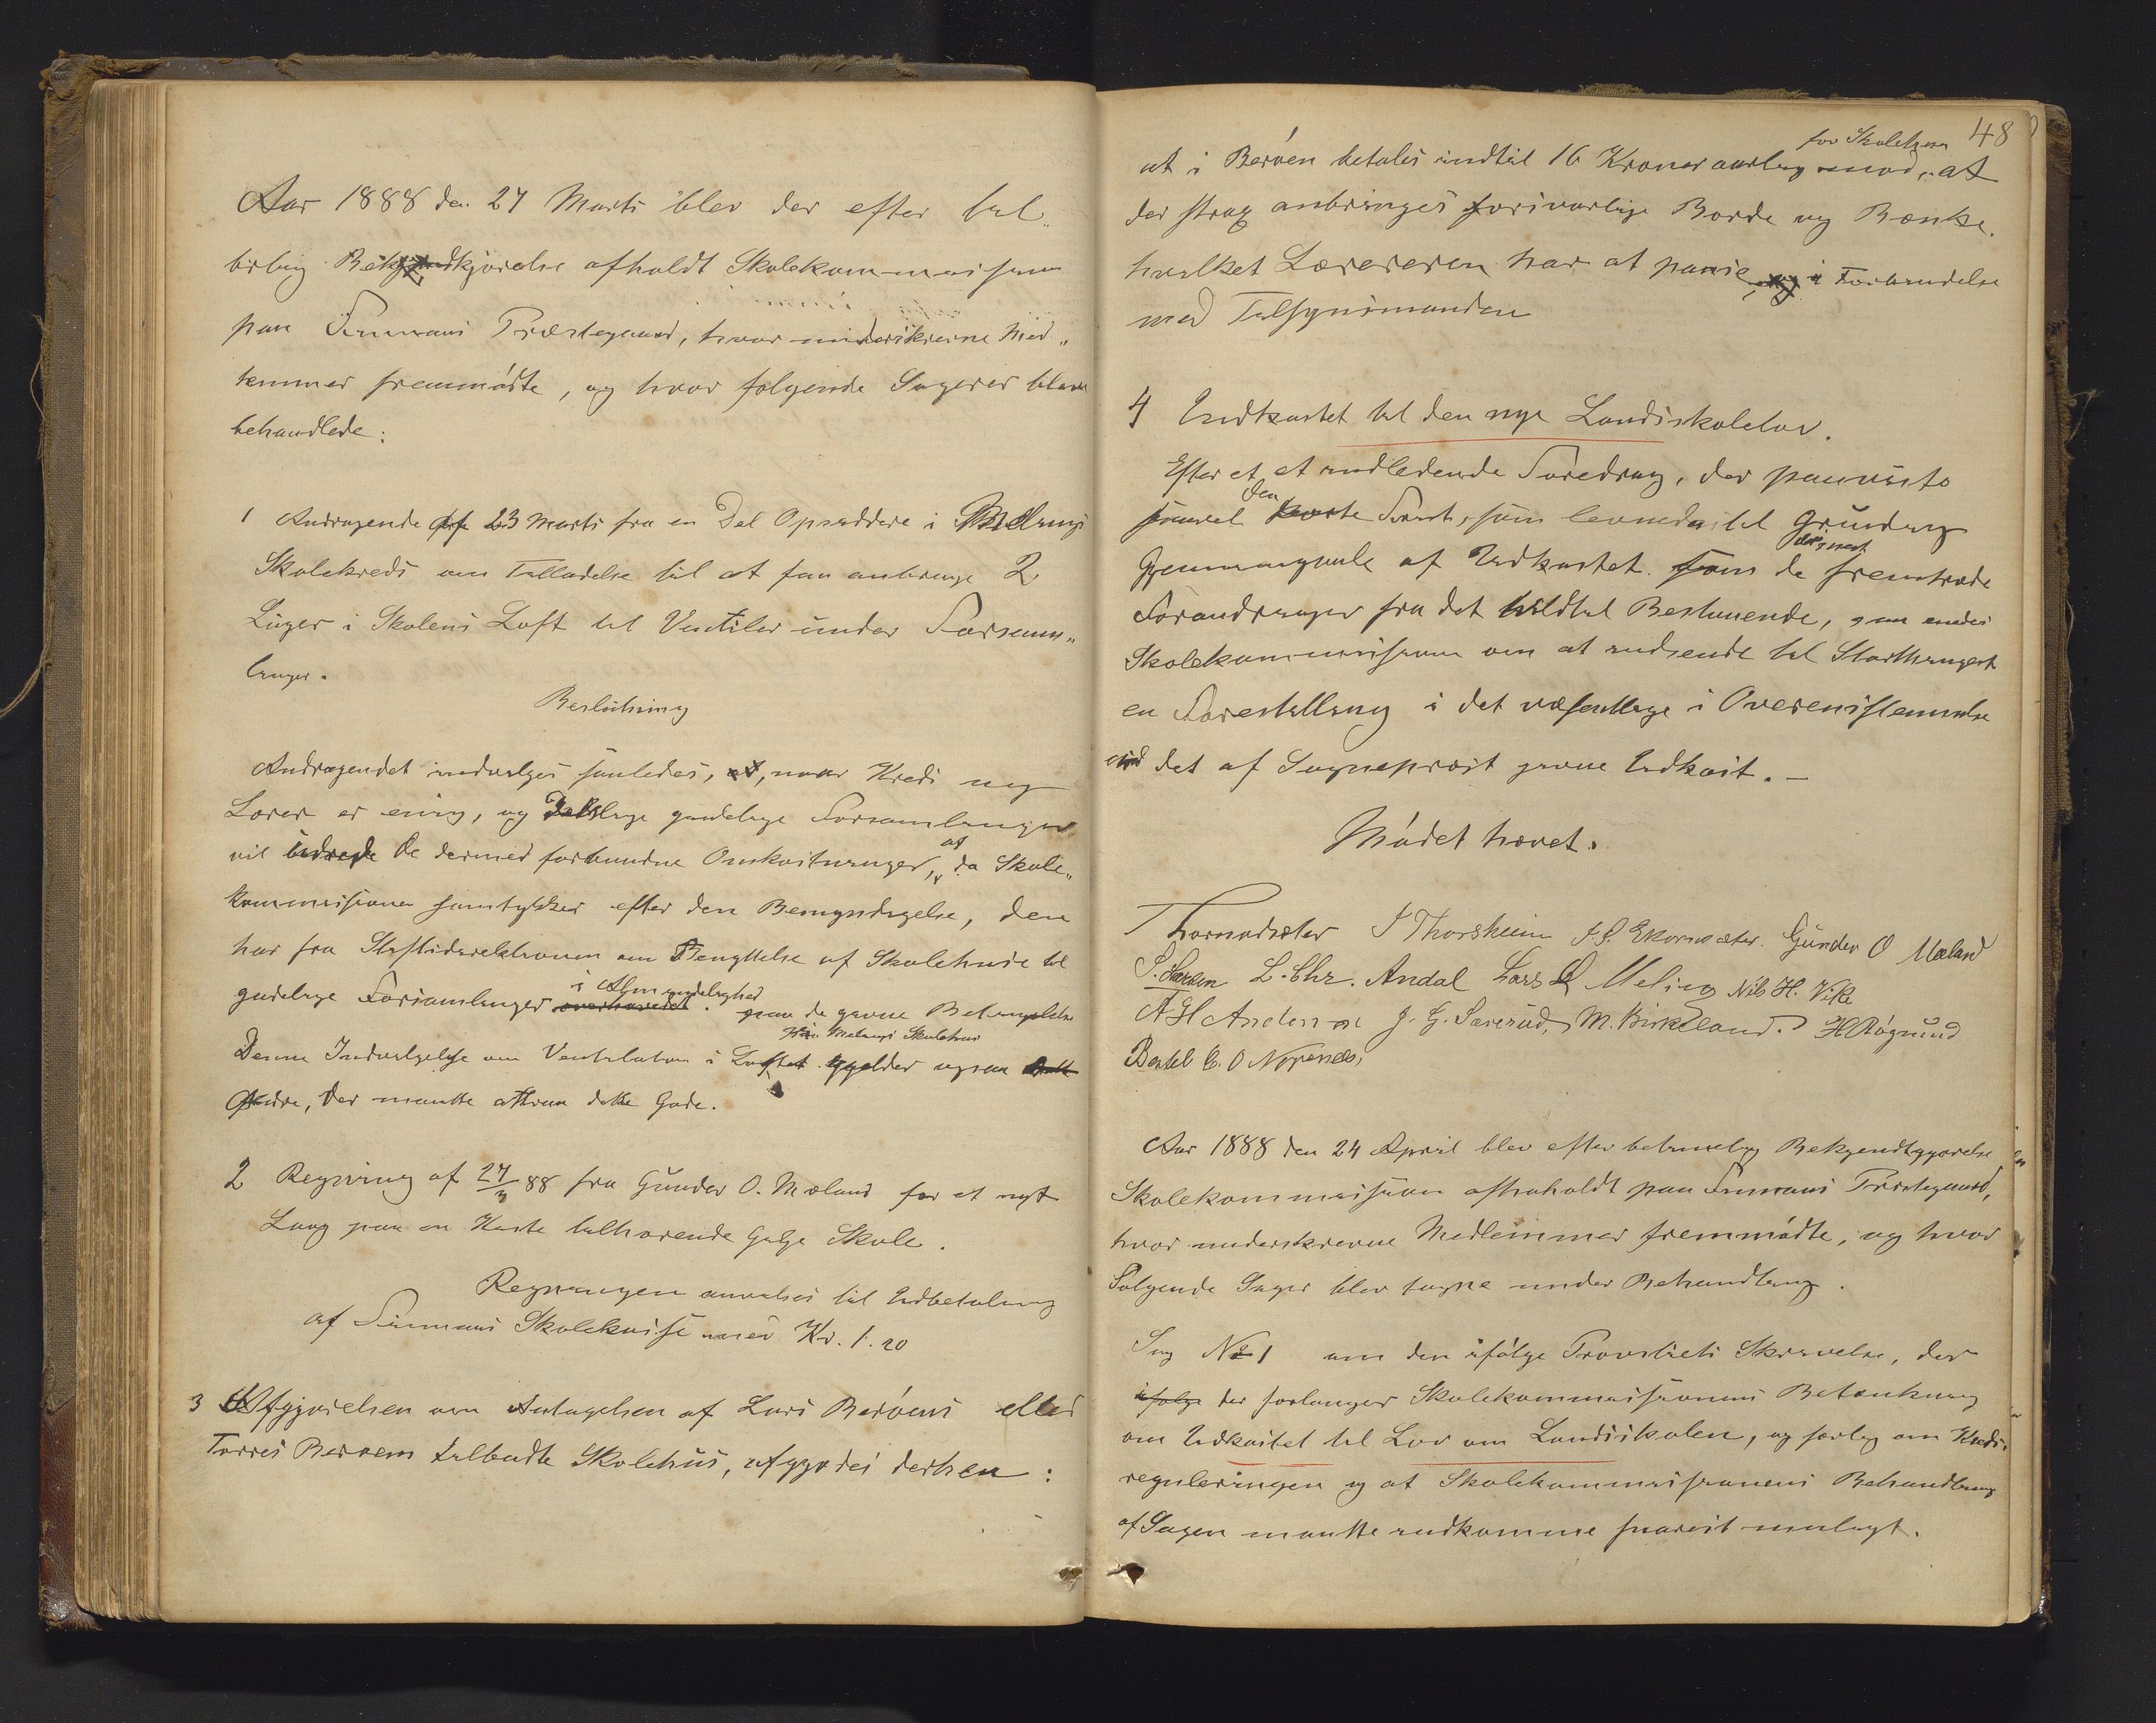 Aar 1888 den 27 Marts blev der efter tbl„
børlig Bekjendtkjørelse afholdt Skolekommission
paa Finnaas Præstegaard, hvor underskrevne Med„
lemmer fremmødte, og hvor følgende Sager blev
behandlede:
1 Andragende af 23 Marts fra en Del Opsiddere i Melings
Skolekreds om Tilladelse til at faa anbringe 2
Luger i Skolens Loft til Ventiler under Forsam„
linger.
Beslutning
Andragendet indvilges saaledes, at, naar Kreds og
Lærer er enig, og gudelige Forsamlinger
vil udrede de dermed forbundne Omkostninger, at da Skole„
kommissionen samtykker efter den Bemyndigelse, den
har fra Stiftsdirektionen om Benyttelse af Skolehuse til
gudelige Forsamlinger overhovedet i Almindelighed. paa de givne Betingelser
Denne Indvilgelse om Ventilation i Loftet i Melings Skolehus gjelder ogsaa
Andre, der maatte attraa dette Gode.
2 Regning af 27/3 88 fra Gunder O. Mæland for et nyt
Laag paa en Kiste tilhørende Gulje Skole.
Regningen anvises til Udbetaling
af Finnaas Skolekasse med Kr. 1.20
3 Afgjørelsen om Antagelsen af Lars Berøens eller
Torres Berøens tilbudte Skolehus, afgjordes derhen:
48
at i Berøen betales indtil 16 Kroner aarlig for Skolehuset mod, at
der strax anbringes forsvarlige Borde og Bænke.
hvilket Læreren har at paase i Forbindelse
med Tilsynsmanden
4 Udkastet til den nye Landsskolelov.
Efter et et indledende Foredrag, der paaviste
saavel den Aand, som levnedes til Grundig
Gjennemgaaelse af Udkastet. som de dernest fremtrædte
Forandringer fra det hidtil Bestaaende, saa enedes
Skolekommissionen om at indsende til Storthinget
en Forestilling i det væsentlige i Overensstemmelse
med det af Sognepræst givne Udkast. –
Mødet hævet.
Thornodsæter J Thorsheim J. S. Ekornsæter. Gunder O Mæland
S. Særsten L. Chr. Andal Lars L Meling Nils H. Vike
A H Andersen J. G. Særsud. M. Birkeland. H Røgnund
Bertel C. O Nypenes,
Aar 1888 den 24 April blev efter betimelig Bekjendtgjørelse
Skolekommission afholdt paa Finnaas Præstegaard,
hvor underskrevne Medlemmer fremmødte, og hvor
Følgende Sager blev tagne under Behandling.
Sag No 1 om den ifølge Provstiets Skrivelse, der
ifølge der forlanger Skolekommissionens Betænkning
om Udkastet til Lov om Landsskolen, og særlig om Kreds-
reguleringen og at Skolekommissionens Behandling
af Sagen maatte indkomme snarest mulegt.